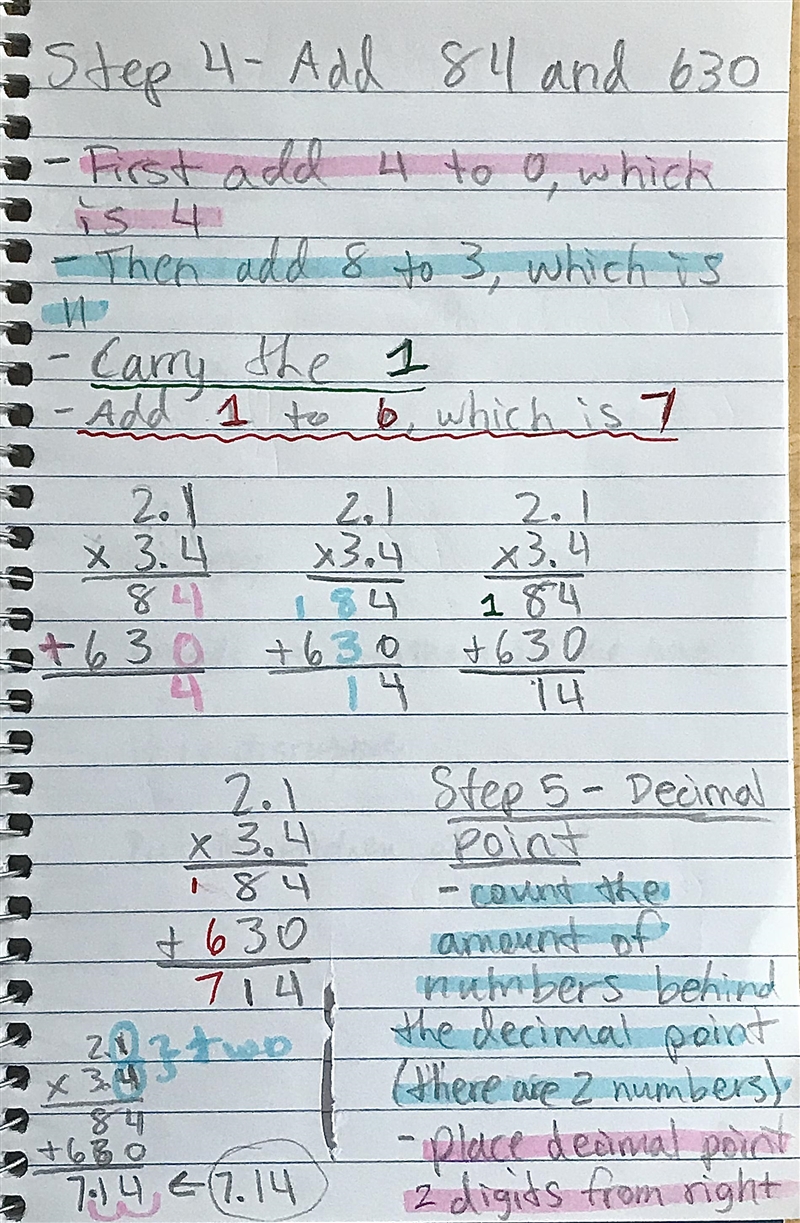 Step 4- Add 84 and 630
- First add 4 to 0, which
is 4
- Then add 8 to 3, which is
11
- Carry the 1
- Add 1 to 6, which is 7
2.1
x 3.4
84
+630
4
2.1
x3.4
1 84
+630
14
2.1
x3.4
1 84
+630
14
2.1
x 3.4
1 84
+ 630
714
Step 5 - Decimal
point
- count the
amount of
numbers behind
the decimal point
(there are 2 numbers)
- place decimal point
2 digits from right
2.1 } two
x 3.4
84
+630
7.14 ← 7.14